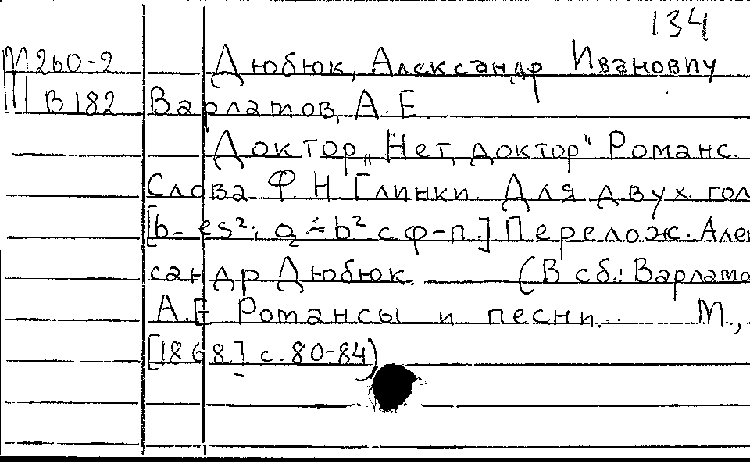 134
М260-2 Дюбюк, Александр Иванович
В182 Варламов, А. Е.
Доктор „Нет, доктор" Романс.
Слова Ф Н Глинки Для двух гол
[b-es²; a-b² с ф-п.] Перелож. Алек
сандр Дюбюк (В сб.: Варламо
А.Е Романсы и песни. М.,
[1868.] с. 80-84)